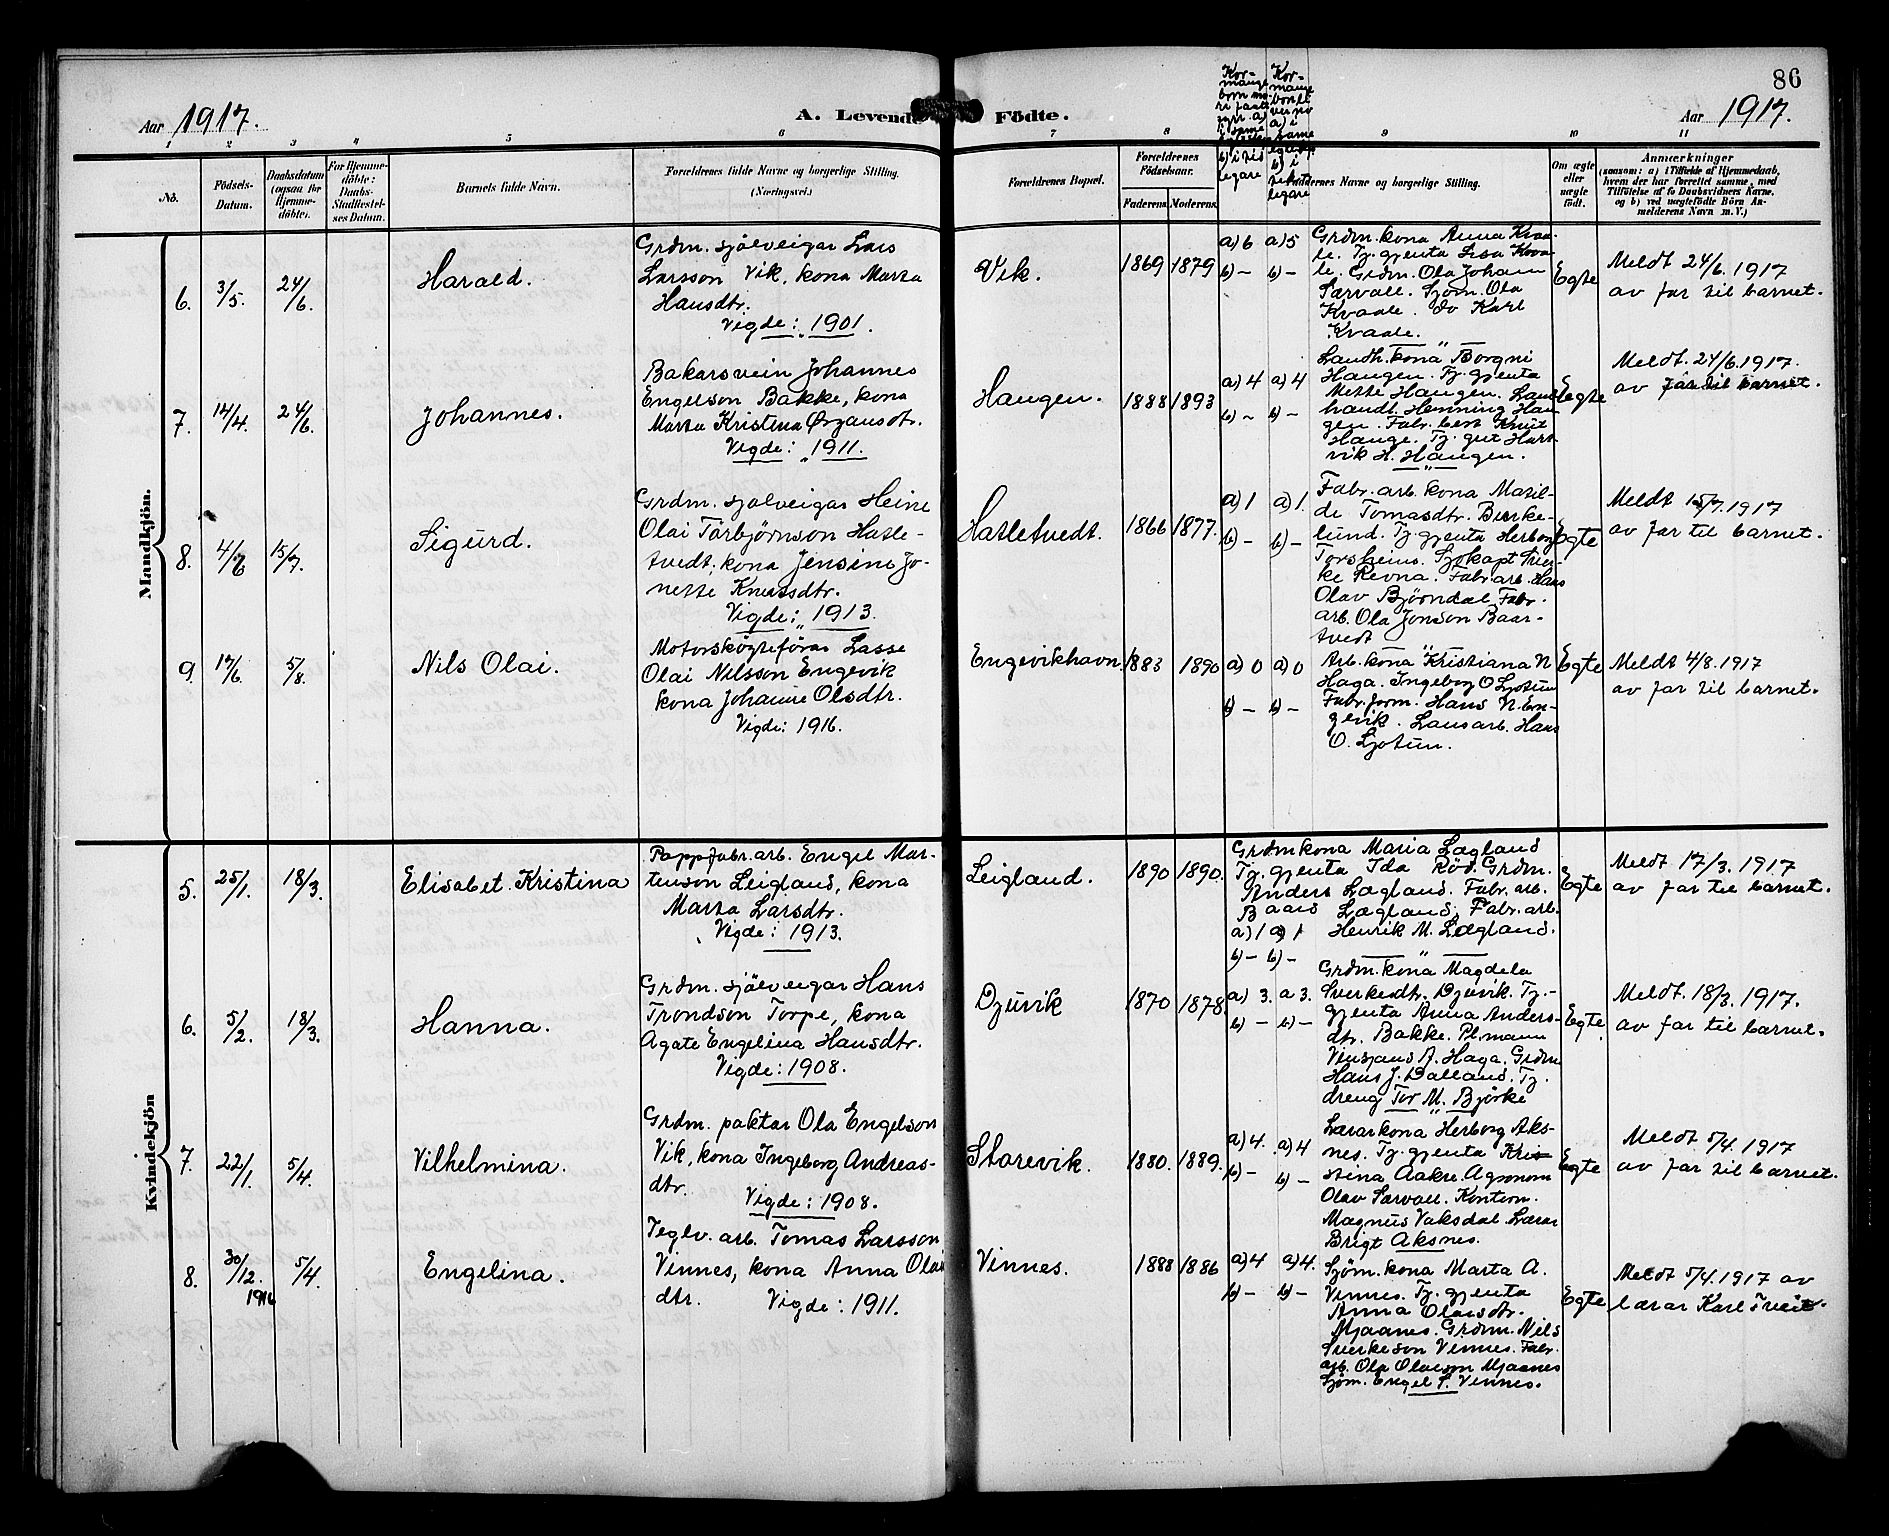 86
Aar 1917.
A. Levende Födte.
Aar 1917.
1 2 3 4 5 6 7 8 9 10 11
No.
Födsels-
Datum.
Daabsdatum
(ogsaa for
Hjemme-
döbte).
For Hjemme-
döbte:
Daabs-
Stadfæstel-
ses Datum.
Barnets fulde Navn.
Forældrenes fulde Navne og borgerlige Stilling.
(Næringsvei.)
Forældrenes Bopæl.
Forældrenes
Födselsaar.
Faderens. Moderens.
Faddernes Navne og borgerlige Stilling.
Om ægte
eller
uægte
født.
Anmærkninger
(saasom: a) i Tilfælde af Hjemmedaab,
hvem der har forrettet samme, med
Tilföielse af to Daabsvidners Navne,
og b) ved uægtefödte Börn An-
melderens Navn m. V.)
Mandkjön.
6.
3/5.
24/6.
Harald.
Grdm. sjölveigar Lars
Larsson Vik, kona Marta
Hansdtr.
Vigde: 1901.
Vik.
1869 1879
a) 6 a) 5
b) – b) –
Grdm. kona Anna Kvaa-
le. Tj. gjenta Lisa Kvaa-
le. Grdm. Ola Johan
Sørvoll. Sjöm. Ola
Kvaale. do Karl
Kvaale.
Egte
Meldt 24/6. 1917
av far til barnet.
7.
14/4.
24/6.
Johannes.
Bakarsvein Johannes
Engelson Bakke, kona
Marta Kristina Ørjansdtr.
Vigde: 1911.
Haugen.
1888 1893
a) 4 a) 4
b) – b) –
Landh. kona Borgni
Haugen. Tj. gjenta
Mette Haugen. Land-
handl. Henning Hau-
gen. Fabr. best Knut
Hauge. Tj. gut Hart-
vik H. Haugen.
Egte
Meldt. 24/6. 1917.
av far til barnet.
8.
4/6
15/7.
Sigurd.
Grdm. sjölveigar Heine
Olai Torbjørnson Hatle-
tvedt, kona Jensine Jo-
nette Knutsdtr.
Vigde: 1913.
Hatletvedt.
1866 1877.
a) 1 a) 1.
b) – b) –
Fabr. arb. kona Matil-
de Tomasdtr. Birke-
lund. Tj. gjenta Herborg
Torsheim. Sjökapt Sver-
ke Revna. Fabr. arb. Hans
Olav Bjørndal. Fabr.
arb. Ola Jonson Baar-
tvedt
Egte
Meldt 15/7. 1917
av far til barnet.
9.
17/6.
5/8.
Nils Olai.
Motorskøyteförar Lasse
Olai Nilsson Engevik
kona Johanne Olsdtr.
Vigde: 1916.
Engevikhavn.
1883 1890
a) 0 a) 0
b) – b) –
Arb. kona Kristiana N
Haga. Ingeborg O Ljotun
Fabr. form. Hans N. En-
gevik. Lausarb. Hans
O. Ljotun.
Egte
Meldt 4/8. 1917
av far til barnet.
Kvindekjön
5.
25/1.
18/3.
Elisabet Kristina
Pappfabr. arb. Engel Mar-
tinson Leigland, kona
Marta Larsdtr.
Vigde: 1913.
Leigland.
1890 1890.
Grdmkona Maria Lægland
Tj. gjenta Ida Röd. Grdm.
Anders Lægland. Fabr. arb.
Baard Lægland, Fabr. arb.
a) 1 a) 1 Henrik M. Lægland.
b) – b) –
Egte
Meldt 17/3. 1917
av far til barnet.
6.
5/2.
18/3.
Hanna.
Grdm. sjölveigar Hans
Trondson Torpe, kona
Agate Engelina Hansdtr.
Vigde: 1908.
Djuvik
1870 1878.
a) 3. a 3.
b) – b) –
Grdm. kona Magdela
Sverkesdtr. Djuvik. Tj.-
gjenta Anna Anders-
dtr. Bakke. Pl. mann
Vinsjans A. Haga. Grdm
Hans J. Dalland. Tj.
dreng Tor M. Björke
Egte.
Meldt. 18/3. 1917.
av far til barnet.
7.
22/1.
5/4.
Vilhelmina.
Grdm. paktar Ola Engelson
Vik, kona Ingeborg Andreas-
dtr.
Vigde: 1908.
Starevik.
1880. 1889.
a) 4. a) 4
b) – b) –
Lærarkona Herborg Aks-
nes. Tj. gjenta Kri-
stina Aakre. Agronom
Olav Sørvoll. Kontorm.
Magnus Vaksdal. Lærar
Brigt Aksnes.
Egte
Meldt 5/4. 1917
av far til barnet.
8.
30/12.
1916
5/4.
Engelina.
Teglv. arb. Tomas Larsson
Vinnes, kona Anna Olai
dtr.
Vigde: 1911.
Vinnes.
1888 1886
a) 4 a) 4.
b) – b) –
Sjöm. kona Marta A.
Vinnes. Tj. gjenta
Anna Olaisdtr.
Mjaanes. Grdm. Nils
Sverkeson Vinnes. Fabr.
arb. Ola Olaison Mjaanes
Sjöm. Engel S. Vinnes.
Egte
Meldt 5/4. 1917 av
lærar Karl Tveit.